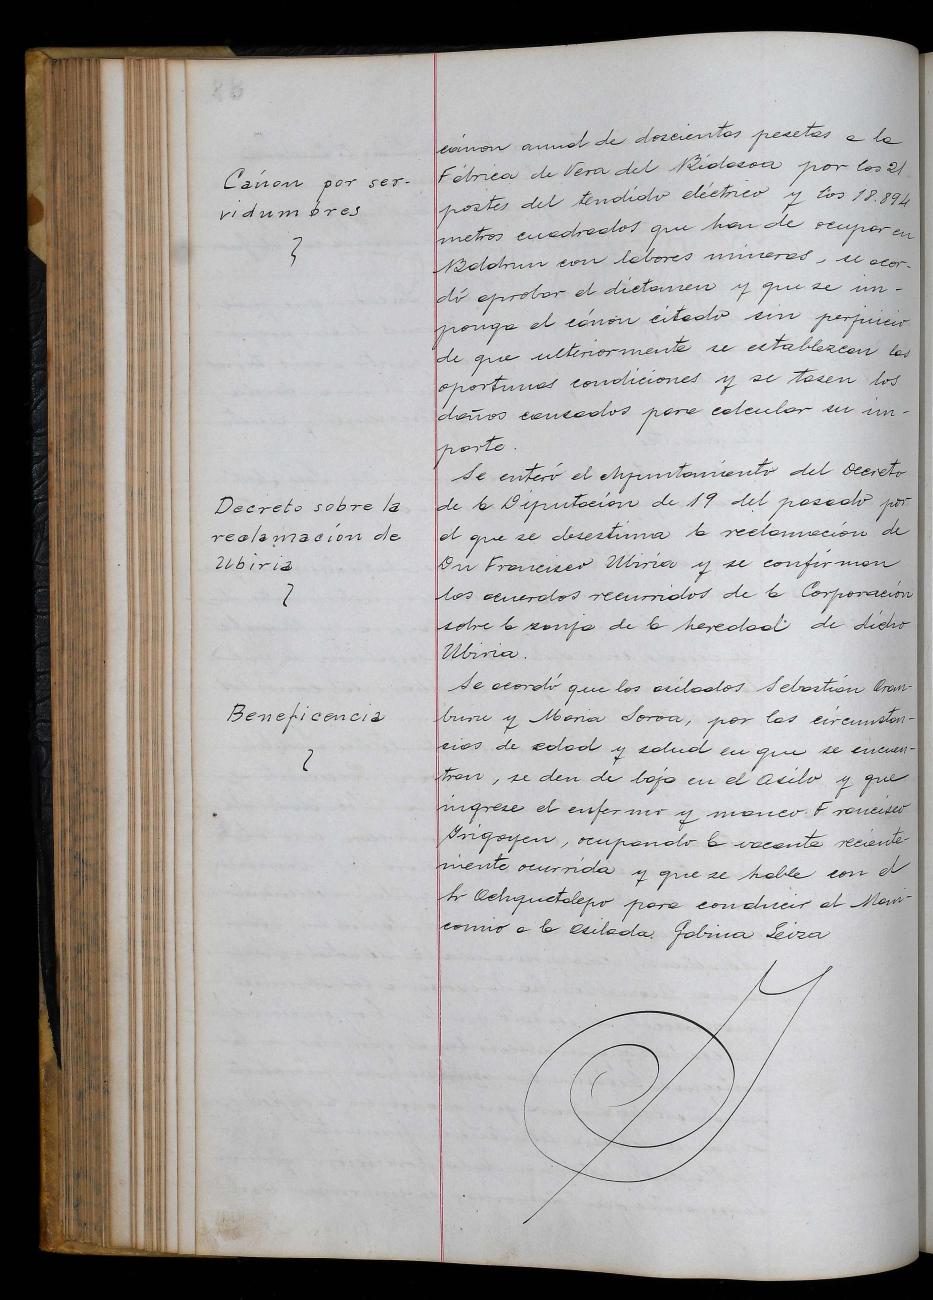 Cánon por ser-
vidumbres
cánon anual de doscientas pesetas a la
Fábrica de Vera del Bidasoa por los 21
postes del tendido eléctrico y los 18.894
metros cuadrados que han de ocupar en
Baldrun con labores mineras, se acor-
dó aprobar el dictamen y que se im-
ponga el cánon citado sin perjuicio
de que ulteriormente se establezcan las
oportunas condiciones y se tasen los
daños causados para calcular su im-
porte.
Decreto sobre la
reclamación de
Ubiria
Se enteró el Ayuntamiento del Decreto
de la Diputación de 19 del pasado por
el que se desestima la reclamación de
Dn Francisco Ubiria y se confirman
los acuerdos recurridos de la Corporación
sobre la zanja de la heredad de dicho
Ubiria.
Beneficencia
Se acordó que los asilados Sebastián Oram-
buru y Maria Soroa, por las circunstan-
cias de edad y salud en que se encuen-
tran, se den de baja en el Asilo y que
ingrese el enfermo y manco Francisco
Irigoyen, ocupando la vacante reciente-
mente ocurrida y que se hable con el
Sr Achquetalepo para conducir al Mani-
comio a la asilada Gabina Leiza